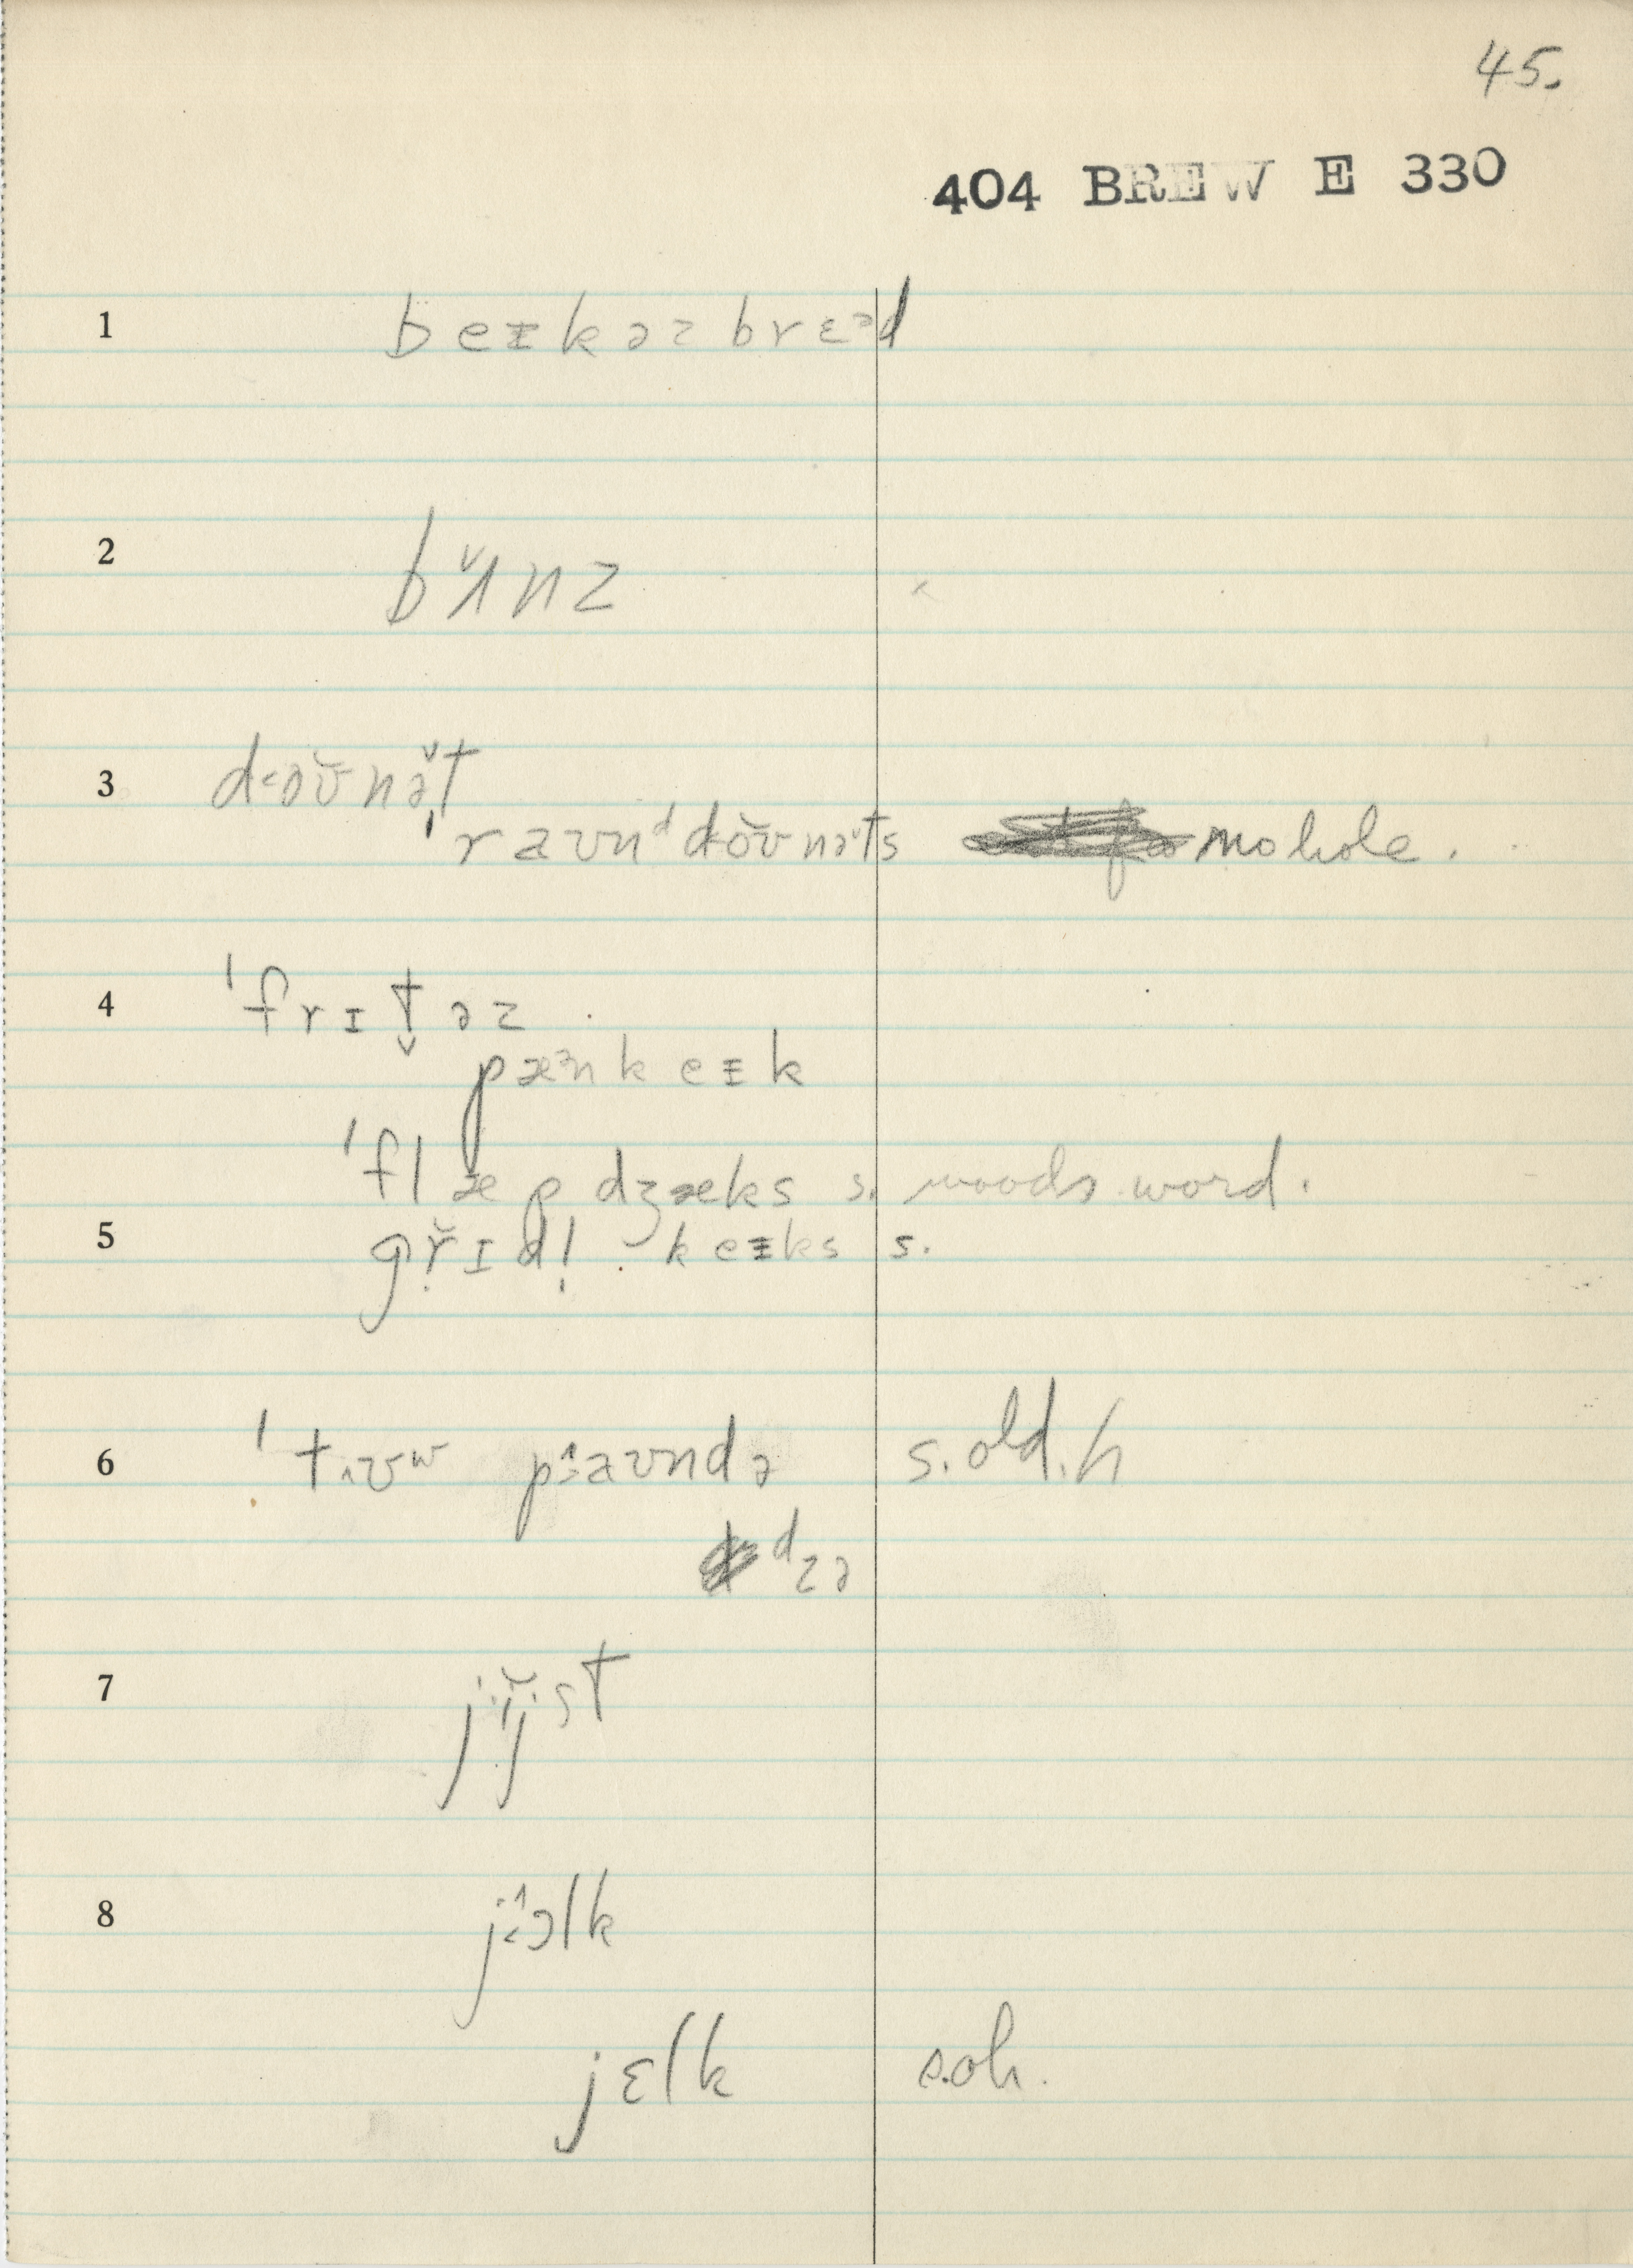 45.
404 BREW E 330
1 beɪkəz brɛᵊd
2 bʌ̌nz
3 d<oʊ̆nə̌t
ˈraʊnᵈ d<oʊ̆nəts no hole.
4 ˈfrɪt̬əz
pæᵊnkeɪk
ˈflæpdʒæks s. woods word.
5 grɪdl̩ keɪks s.
6 ˈtʊʷ paʊndə s. old. h
dzə
7 jijst
8 jɔlk
jɛlk s. oh.